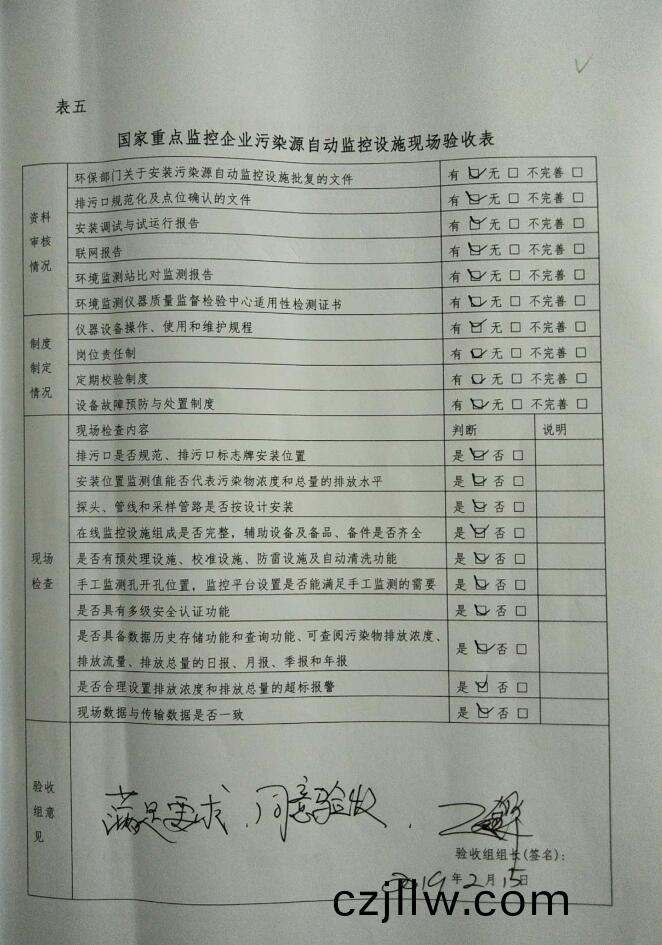 表五
国家重点监控企业污染源自动监控设施现场验收表
资料审核情况
环保部门关于安装污染源自动监控设施批复的文件 有 ☑ 无 □ 不完善 □
排污口规范化及点位确认的文件 有 ☑ 无 □ 不完善 □
安装调试与试运行报告 有 ☑ 无 □ 不完善 □
联网报告 有 ☑ 无 □ 不完善 □
环境监测站比对监测报告 有 ☑ 无 □ 不完善 □
环境监测仪器质量监督检验中心适用性检测证书 有 ☑ 无 □ 不完善 □
制度制定情况
仪器设备操作、使用和维护规程 有 ☑ 无 □ 不完善 □
岗位责任制 有 ☑ 无 □ 不完善 □
定期校验制度 有 ☑ 无 □ 不完善 □
设备故障预防与处置制度 有 ☑ 无 □ 不完善 □
现场检查
现场检查内容 判断 说明
排污口是否规范、排污口标志牌安装位置 是 ☑ 否 □
安装位置监测值能否代表污染物浓度和总量的排放水平 是 ☑ 否 □
探头、管线和采样管路是否按设计安装 是 ☑ 否 □
在线监控设施组成是否完整，辅助设备及备品、备件是否齐全 是 ☑ 否 □
是否有预处理设施、校准设施、防雷设施及自动清洗功能 是 ☑ 否 □
手工监测孔开孔位置，监控平台设置是否能满足手工监测的需要 是 ☑ 否 □
是否具有多级安全认证功能 是 ☑ 否 □
是否具备数据历史存储功能和查询功能、可查阅污染物排放浓度、
排放流量、排放总量的日报、月报、季报和年报 是 ☑ 否 □
是否合理设置排放浓度和排放总量的超标报警 是 ☑ 否 □
现场数据与传输数据是否一致 是 ☑ 否 □
验收组意见
满足要求，同意验收.
验收组组长(签名)：
2019年2月15日
czjllw.com